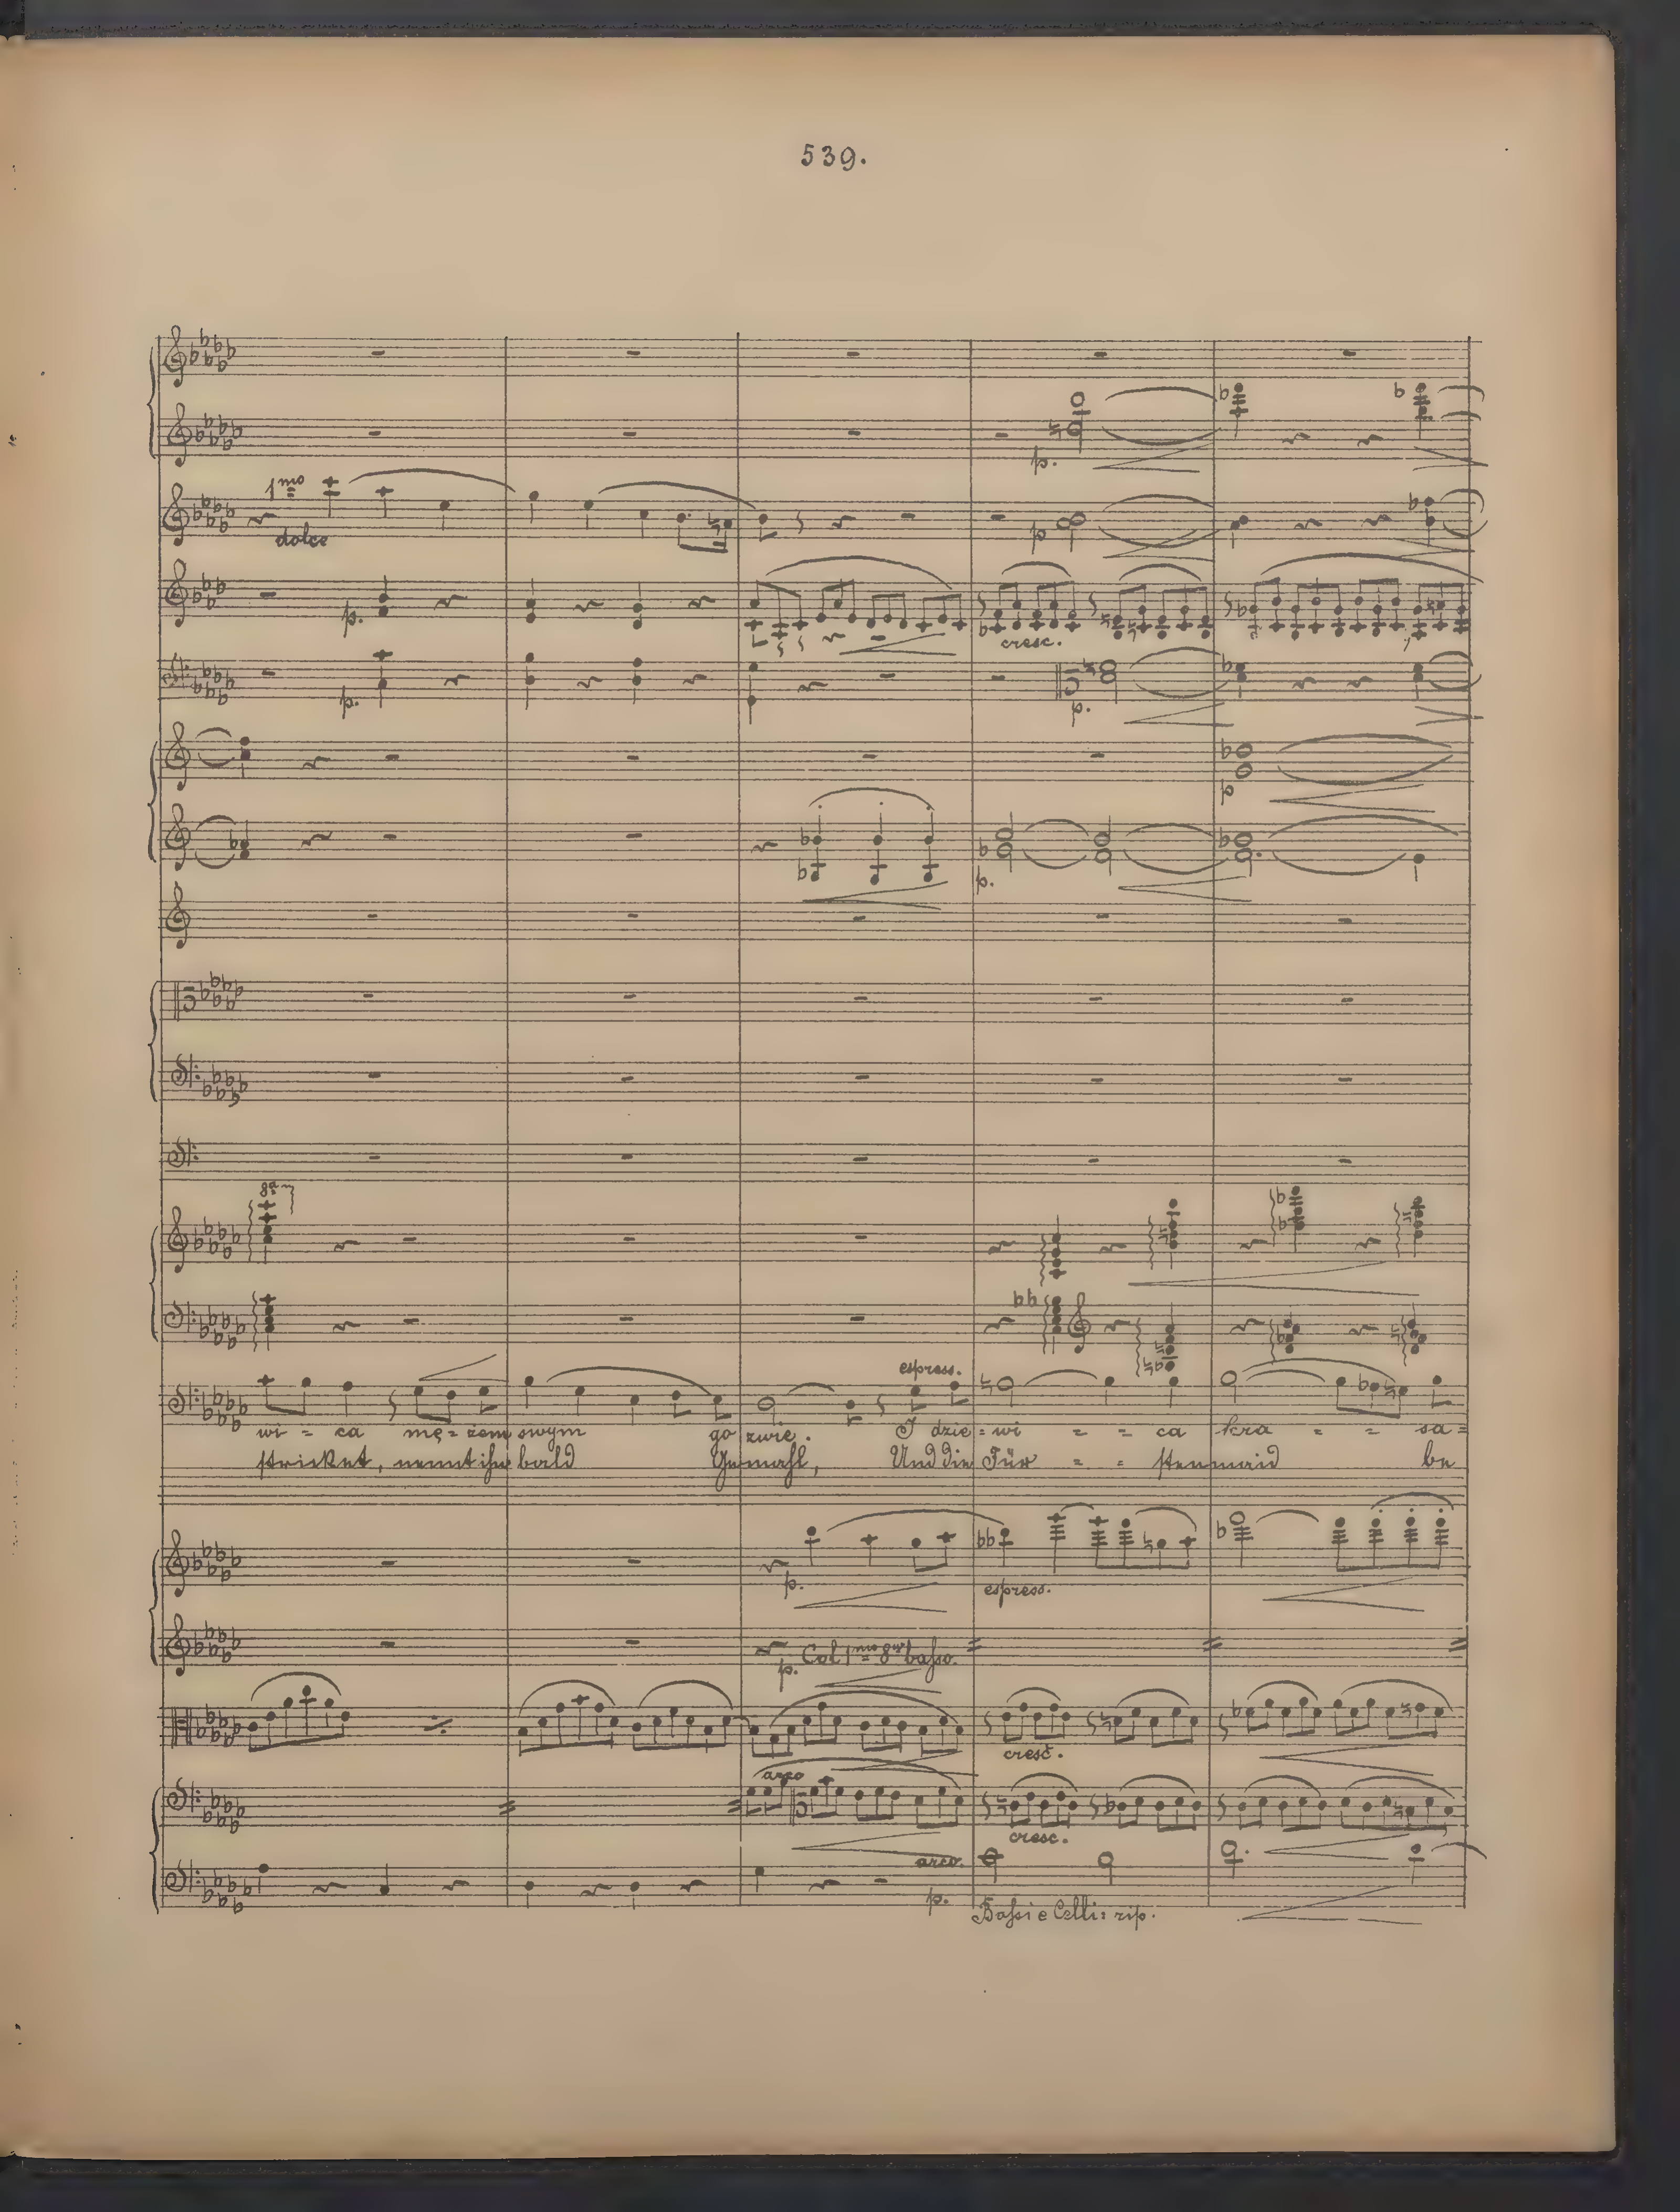 539.
1mo
dolce
p.
p
p.
cresc.
p.
p.
p
p.
8a
espress.
wi = ca mę = żem swym go zwie. I dzie = wi = = ca kra = = sa =
stricket, nennt ihn bald Gemahl, Und die Für = = stenmaid be
p.
espress.
p. Col 1mo 8va basso.
cresc.
arco
cresc.
arco.
p.
Bassi e Celli: rip.